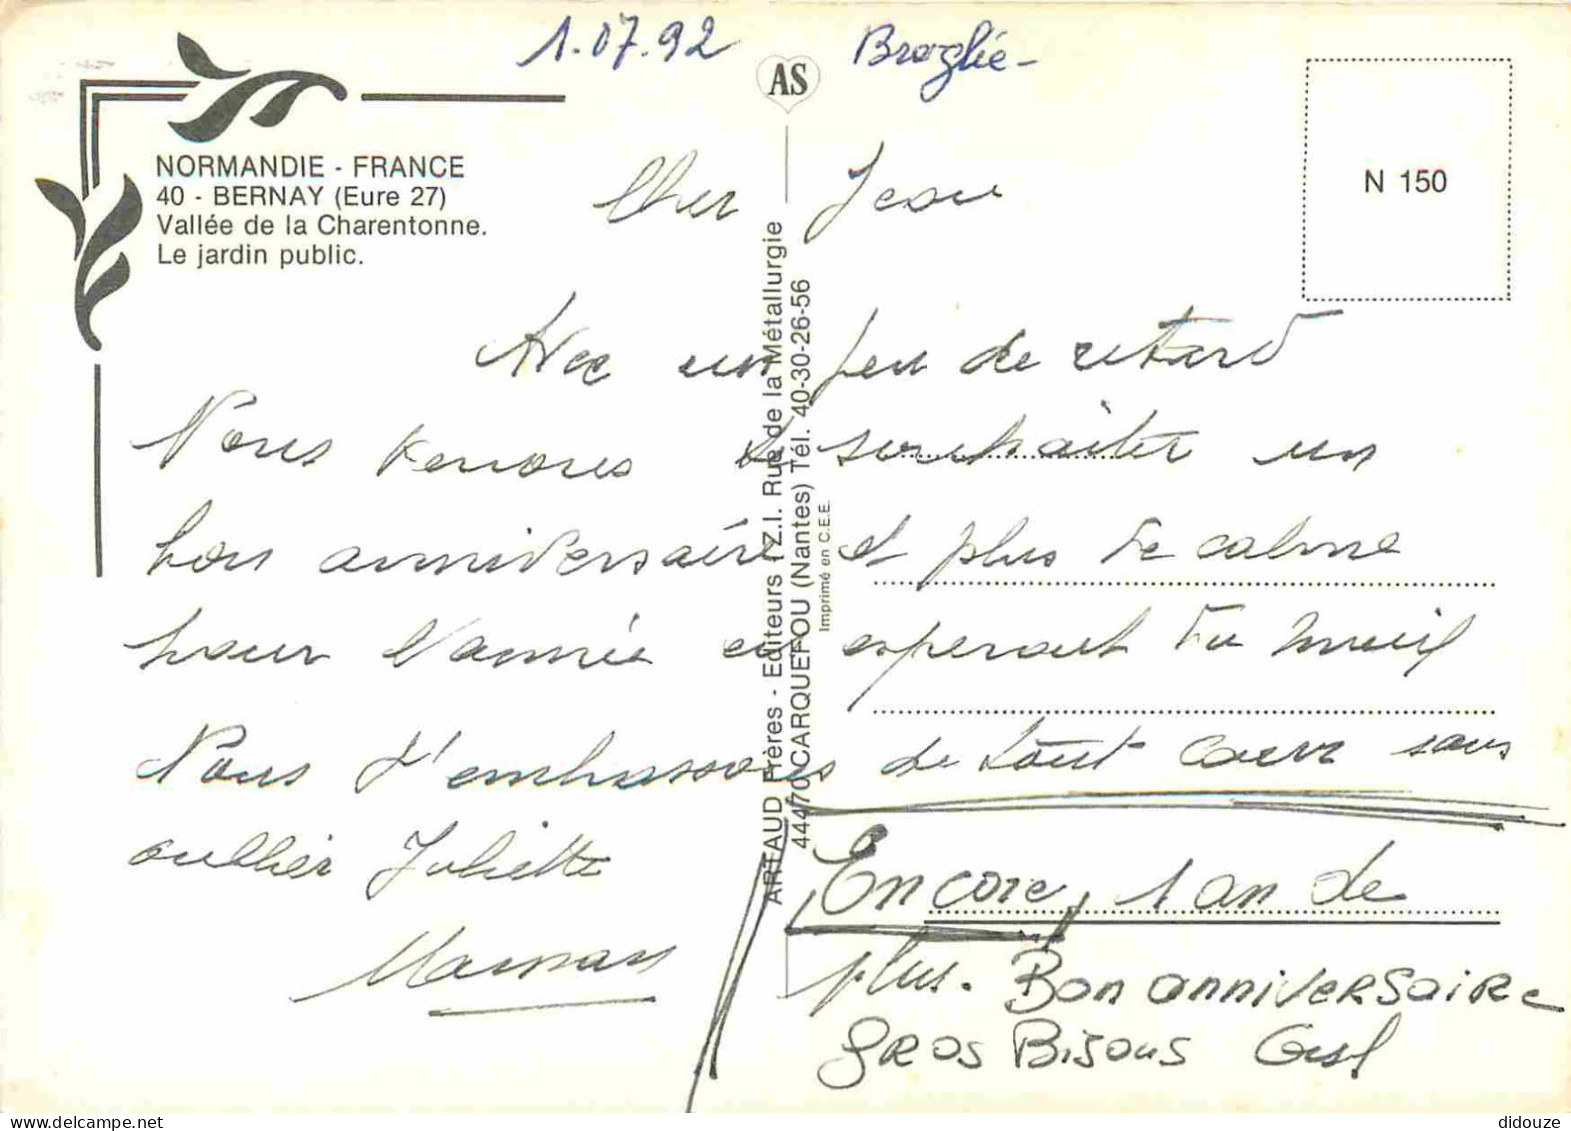 1.07.92
Broglie -
AS
NORMANDIE - FRANCE
40 - BERNAY (Eure 27)
Vallée de la Charentonne.
Le jardin public.
N 150
Cher Jean
Avec un peu de retard
Nous venons te souhaiter un
bon anniversaire et plus de calme
pour l'année en esperant du mieil
Nous t'embrassons de tout coeur sans
oublier Juliette
Maman
Encore 1 an de
plus. Bon anniversaire
gros Bisous
ARTAUD Frères - Editeurs / Z.I. Rue de la Métallurgie
44470 CARQUEFOU (Nantes) Tél. 40-30-26-56
Imprimé en C.E.E.
didouze